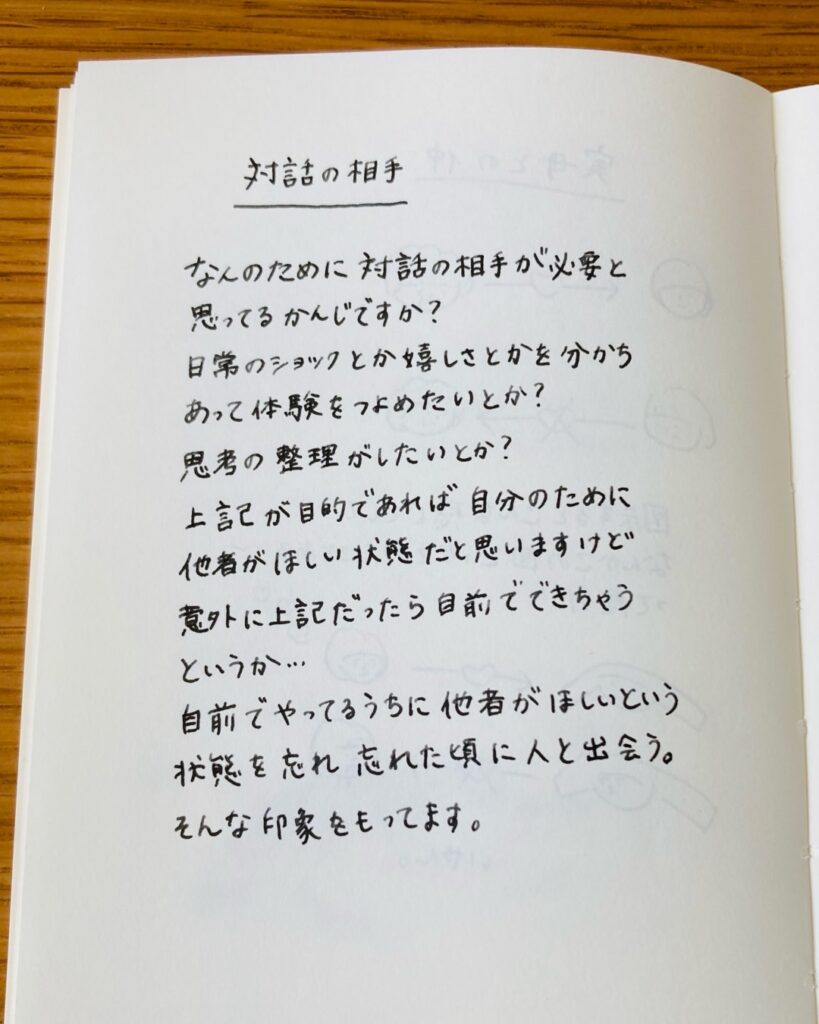 対話の相手
なんのために対話の相手が必要と
思ってるかんじですか?
日常のショックとか嬉しさとかを分かち
あって体験をつよめたいとか?
思考の整理がしたいとか?
上記が目的であれば自分のために
他者がほしい状態だと思いますけど
意外に上記だったら自前でできちゃう
というか…
自前でやってるうちに他者がほしいという
状態を忘れ 忘れた頃に人と出会う。
そんな印象をもってます。